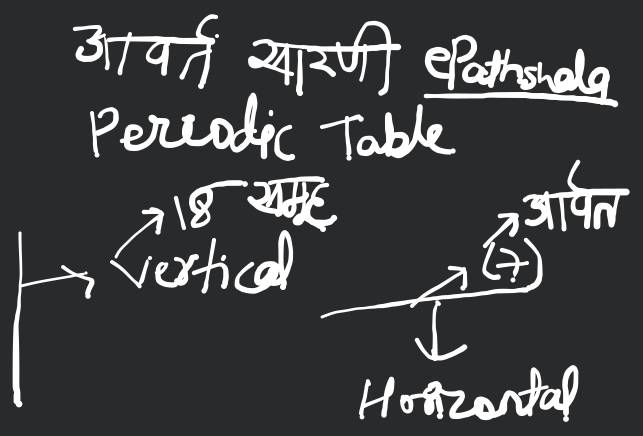 आवर्त सारणी ePathshala
Periodic Table
18 समूह
आर्वत
Vertical
(7)
Horizontal